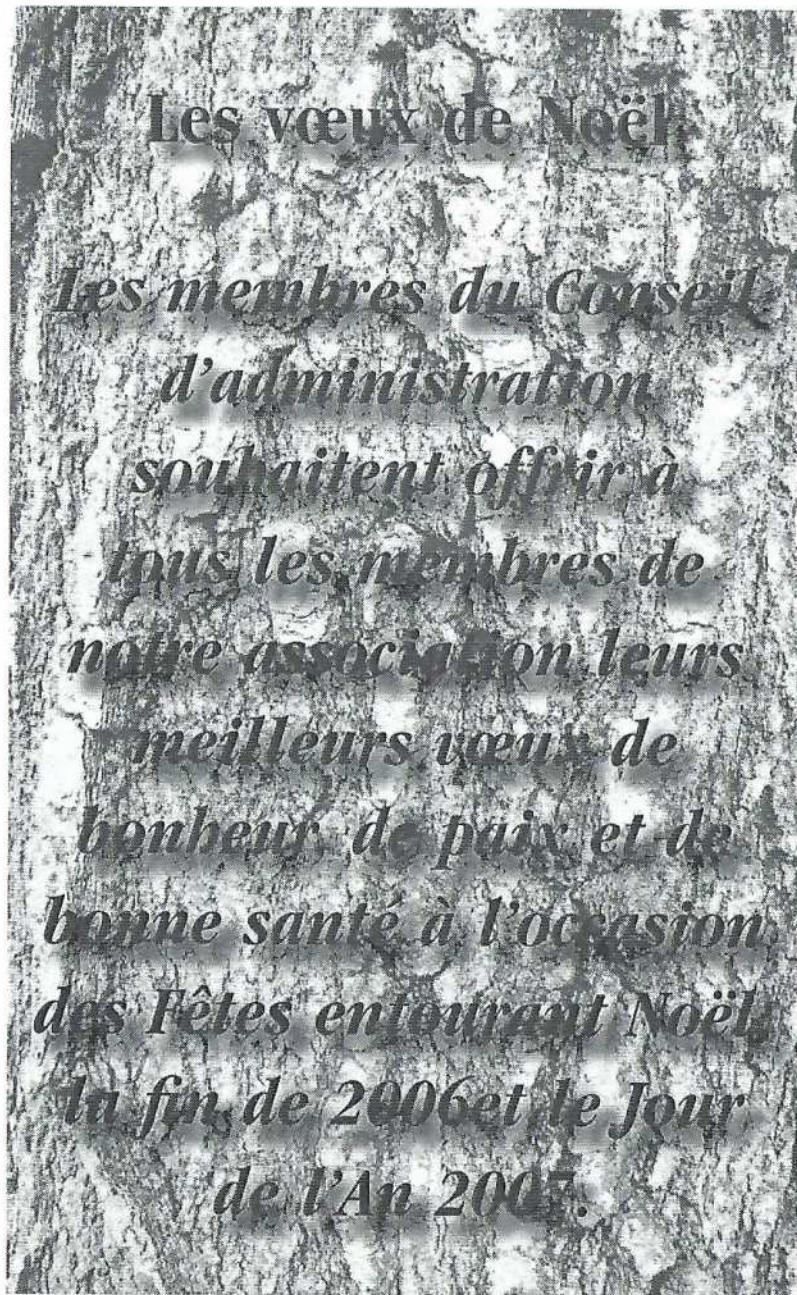 Les vœux de Noël
Les membres du Conseil
d'administration
souhaitent offrir à
tous les membres de
notre association leurs
meilleurs vœux de
bonheur, de paix et de
bonne santé à l'occasion
des Fêtes entourant Noël,
la fin de 2006et le Jour
de l'An 2007.